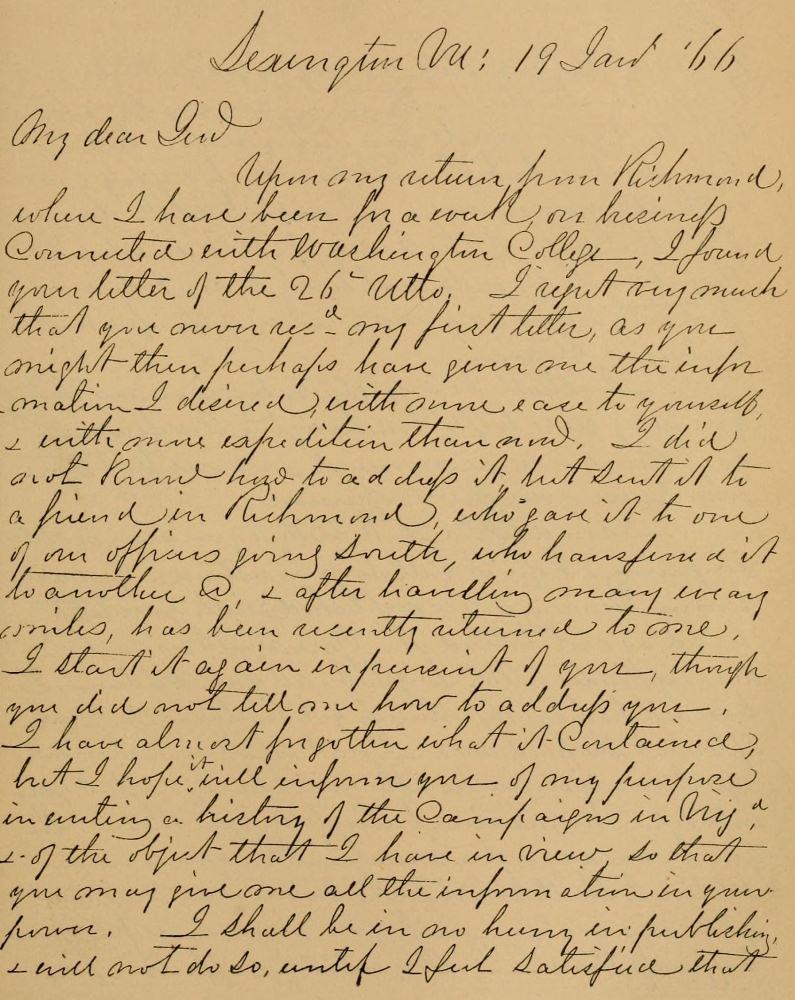 Lexington Va: 19 Jany '66
My dear Genl
Upon my return from Richmond,
where I have been for a week on business
Connected with Washington College, I found
your letter of the 26th Ulto. I regret very much
that you never recd my first letter, as you
might then perhaps have given me the infor
mation I desired, with more ease to yourself,
& with more expedition than now. I did
not know how to address it, but sent it to
a friend in Richmond, who gave it to one
of our officers going South, who transferred it
to another &, & after travelling many weary
miles, has been recently returned to me.
I start it again in pursuit of you, though
you did not tell me how to address you.
I have almost forgotten what it Contained,
but I hope it will inform you of my purpose
in writing a history of the Campaigns in Virga,
& of the object that I have in view, so that
you may give me all the information in your
power. I shall be in no hurry in publishing,
& will not do so, until I feel satisfied that